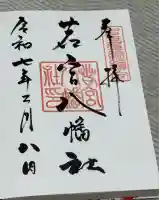 奉拝
若宮八幡社
令和七年二月八日